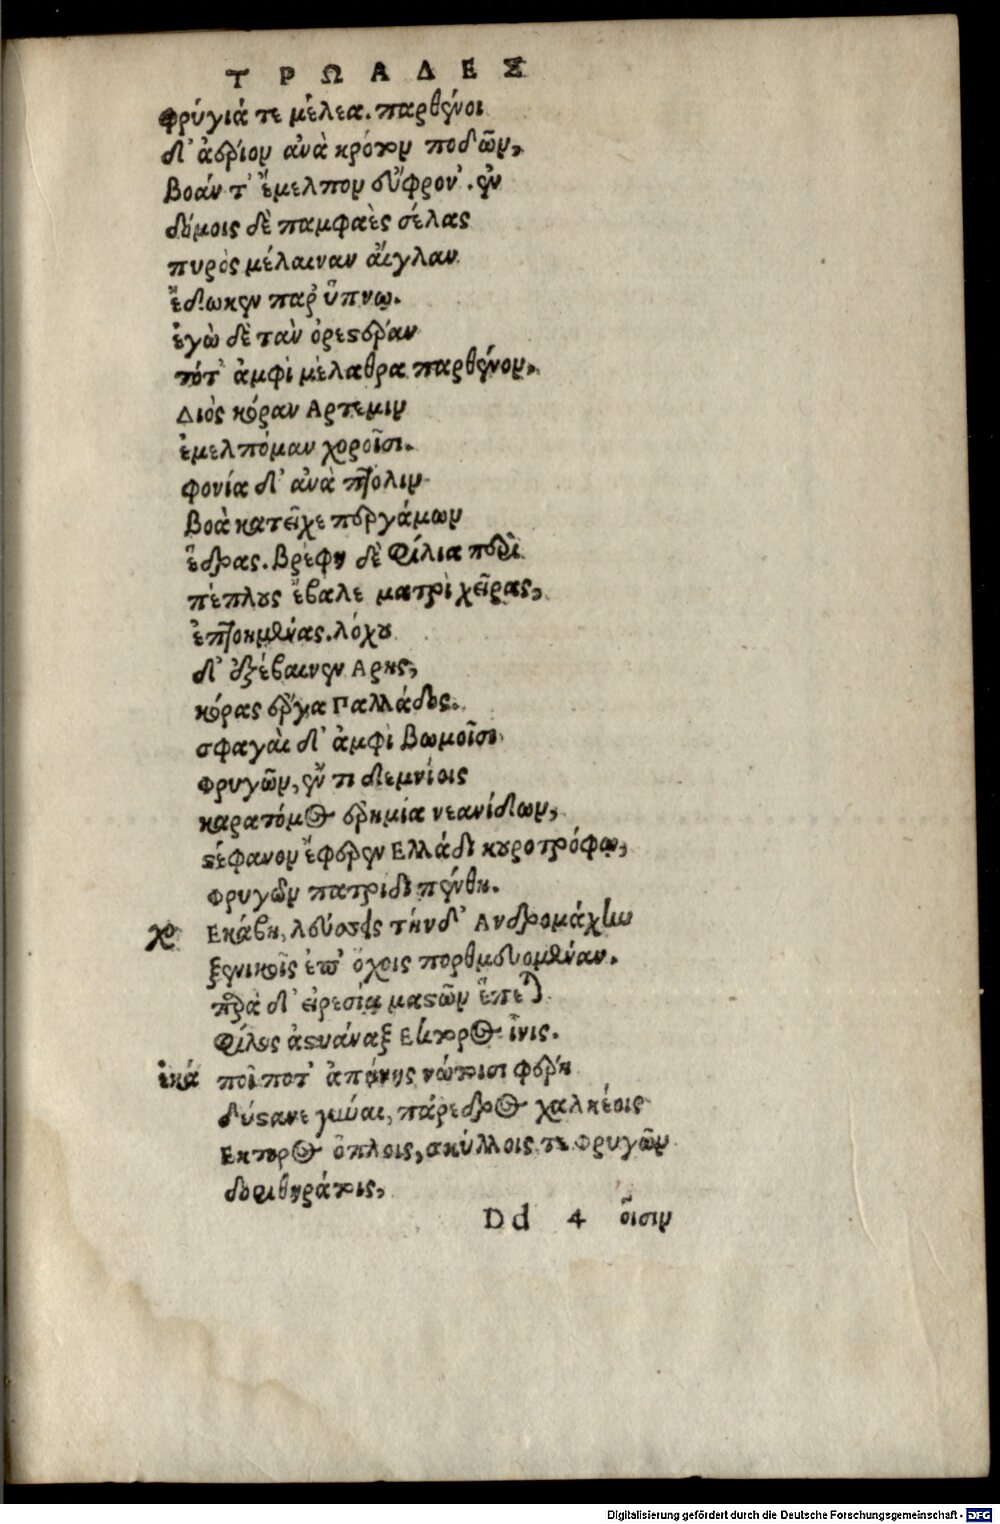 ΤΡΩΑΔΕΣ
φρύγιά τε μέλεα. παρθένοι
δ' ἀέριον ἀνὰ κρότον ποδῶν,
βοάν τ' ἔμελπον εὔφρον'. ἐν
δόμοις δὲ παμφαὲς σέλας
πυρὸς μέλαιναν αἴγλαν
ἔδωκεν παρ' ὕπνῳ.
ἐγὼ δὲ τὰν ὀρεστέραν
τότ' ἀμφὶ μέλαθρα παρθένον,
Διὸς κόραν Αρτεμιν
ἐμελπόμαν χοροῖσι.
φονία δ' ἀνὰ πτόλιν
βοὰ κατεῖχε περγάμων
ἕδρας. βρέφη δὲ φίλια περὶ
πέπλους ἔβαλε ματρὶ χεῖρας,
ἐπτοημένας. λόχου
δ' ἐξέβαινεν Αρης,
κόρας ἔργα Παλλάδος.
σφαγαὶ δ' ἀμφὶ βωμοῖσι
φρυγῶν, ἔν τι δεμνίοις
καρατόμος ἐρημία νεανίδων,
στέφανον ἔφερεν Ελλάδι κουροτρόφῳ,
φρυγῶν πατρίδι πένθη.
χο Εκάβη, λεύσσεις τήνδ' Ανδρομάχην
ξενικοῖς ἐπ' ὄχοις πορθμευομέναν.
παρὰ δ' εἰρεσίᾳ μαστῶν ἕπεται
φίλος ἀστυάναξ Εκτορος ἶνις.
ἑκά ποῖ ποτ' ἀπήνης νώτοισι φέρῃ
δύστανε γύναι, πάρεδρος χαλκέοις
Εκτορος ὅπλοις, σκύλλοις τε φρυγῶν
δοριθηράτοις,
Dd 4 οἷσιν
Digitalisierung gefördert durch die Deutsche Forschungsgemeinschaft - DFG